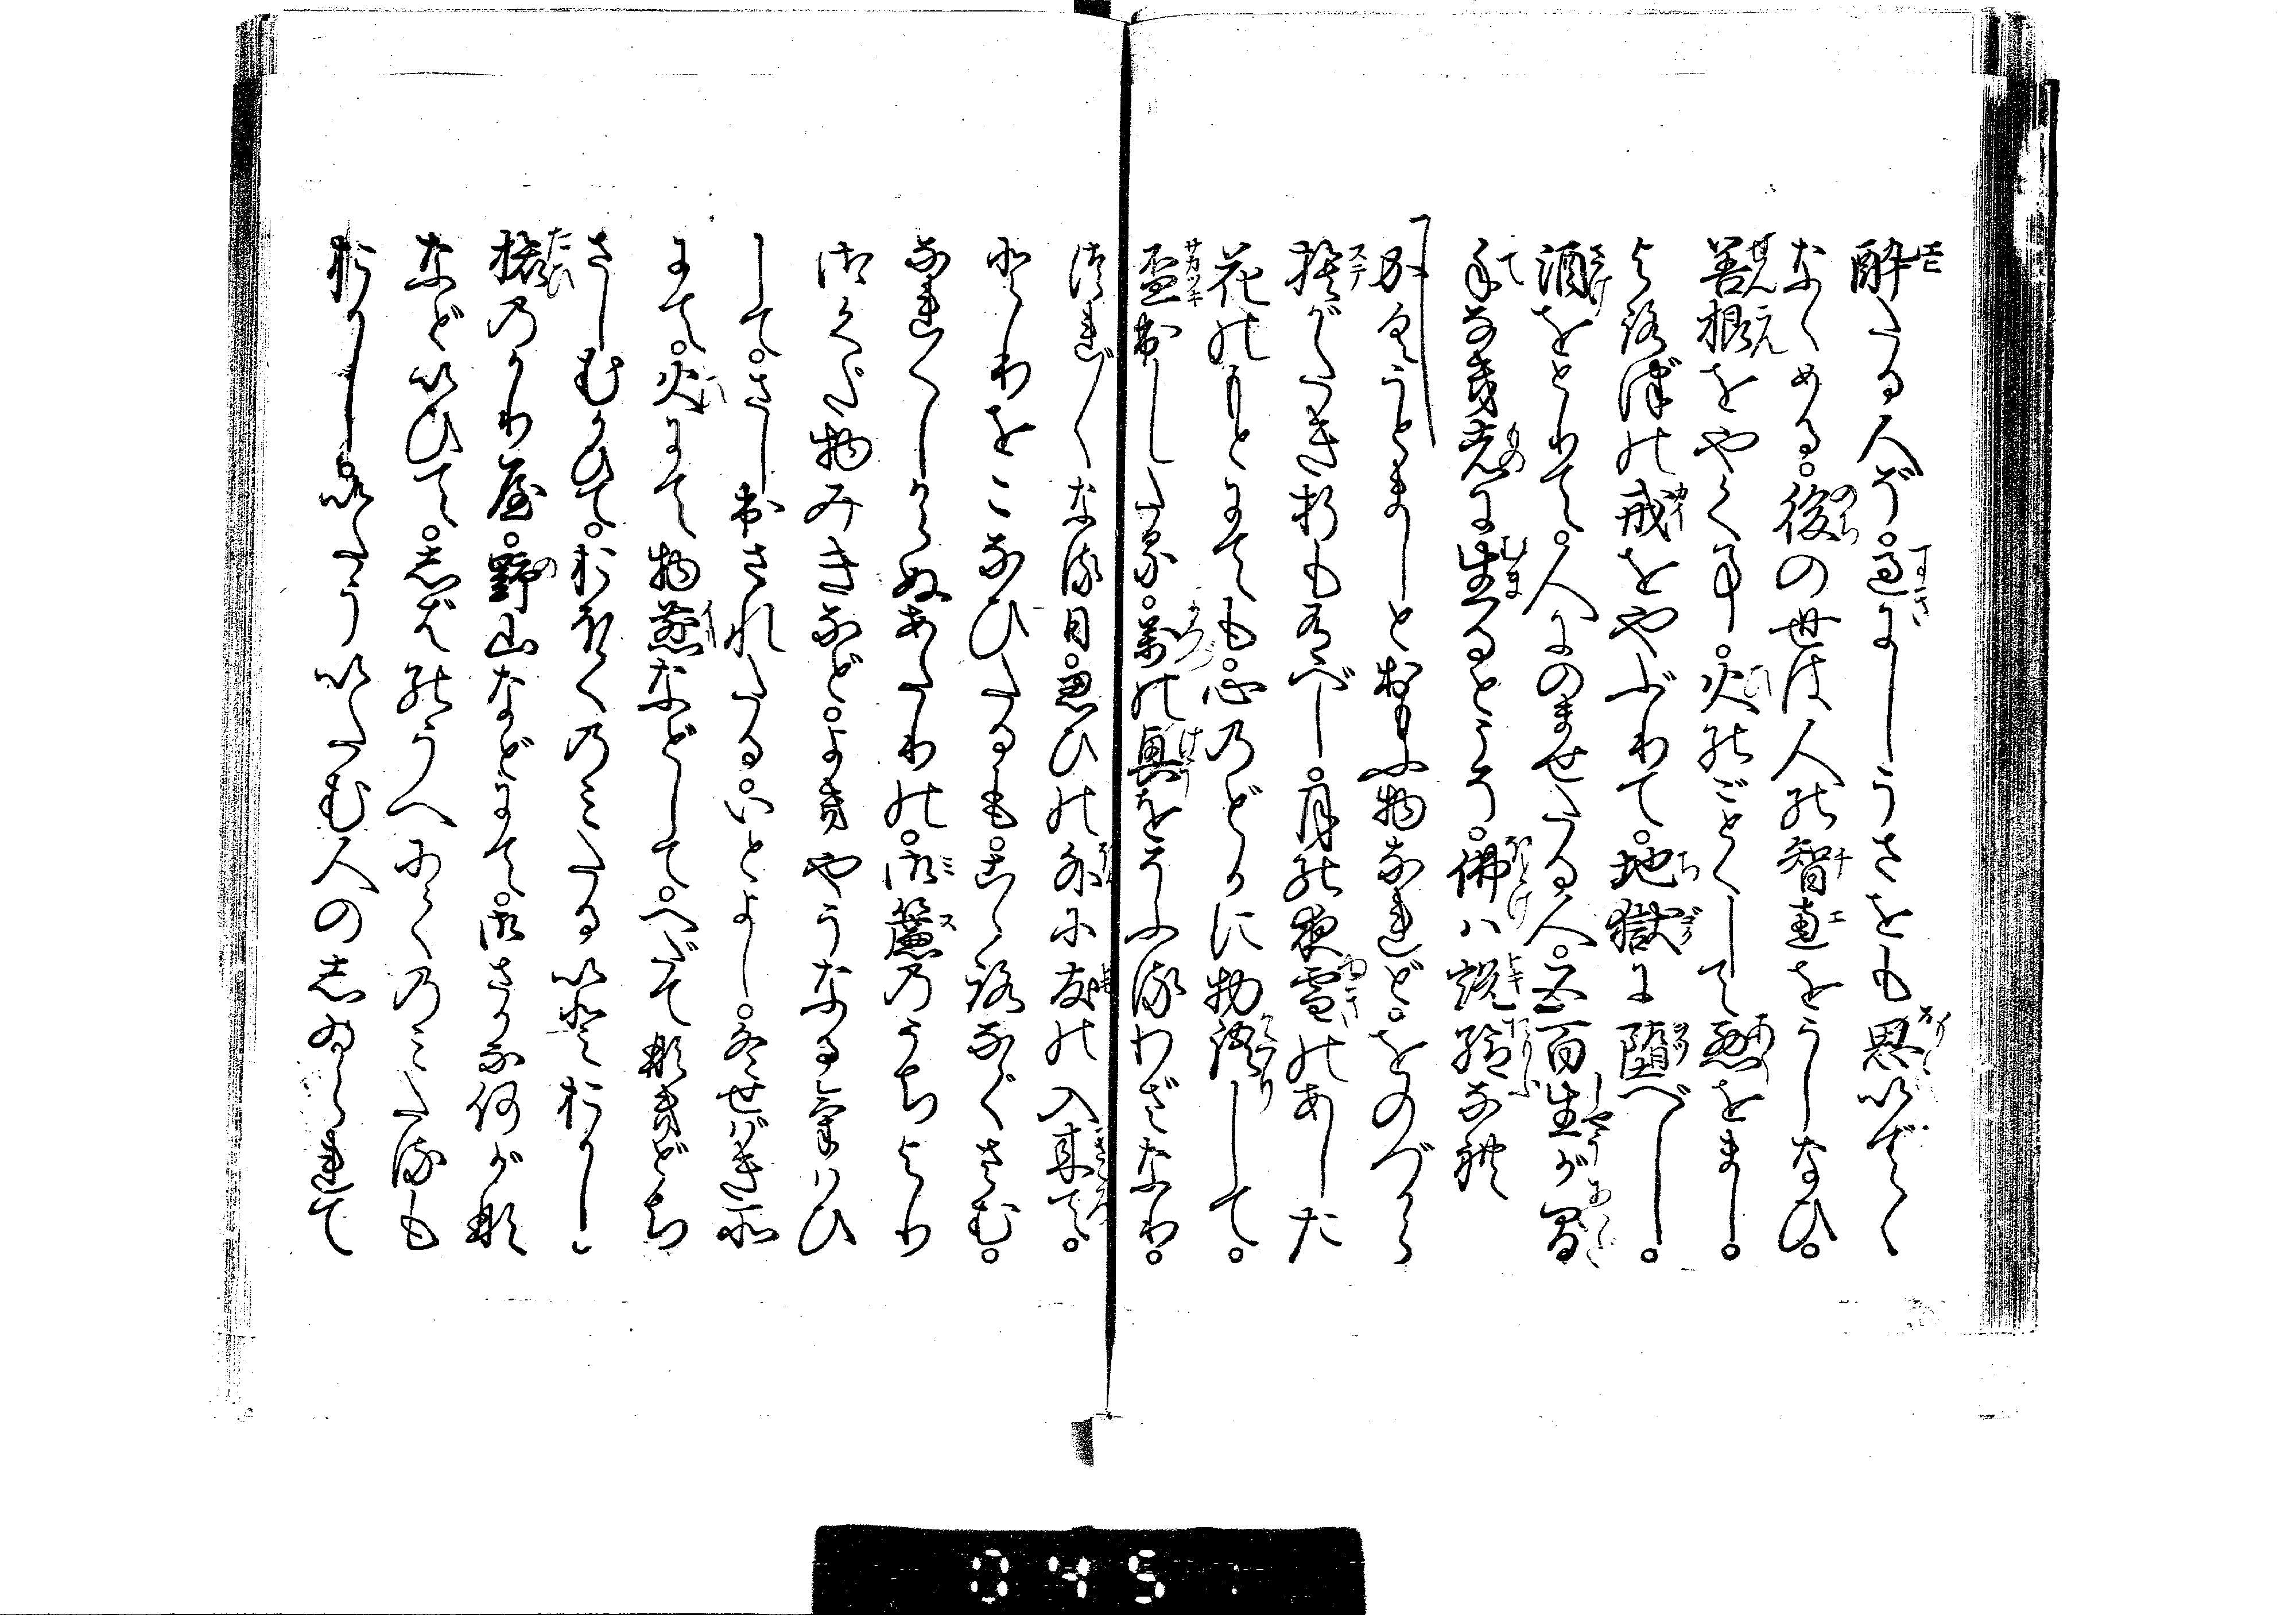 酔たる人ぞ。過にしうさをも思いでゝ
なくめる。後の世は人の智恵をうしなひ。
善根をやく事。火のごとくして悪をまし。
よろづの戒をやぶりて。地獄に堕べし。
酒をとりて。人にのませたる人。五百生が間
手なき者に生るとこそ。佛ハ説給なれ
かくうとましとおもふ物なれど。をのづから
捨がたき折も有べし。月の夜雪のあした
花のもとにても。心のどかに物語して。
盃出したる。万の興をそふるわざなり。
つれ〴〵なる日。思ひの外に友の入来て。
とりをこなひたるも。心なぐさむ。
なれ〳〵しからぬあたりの。御簾のうちより
御くだ物みきなど。よきやうなる気ハひ
して。さし出されたる。いとよし。冬せばき所
にて。火にて物煎などして。へだてなきどち
さしむかひて。おほくのみたるいとおかし。
旅のかり屋。野山などにて。御さかな何がな
などいひて。しばのうへにてのみたるも
おかし。いたういたむ人のしゐられて